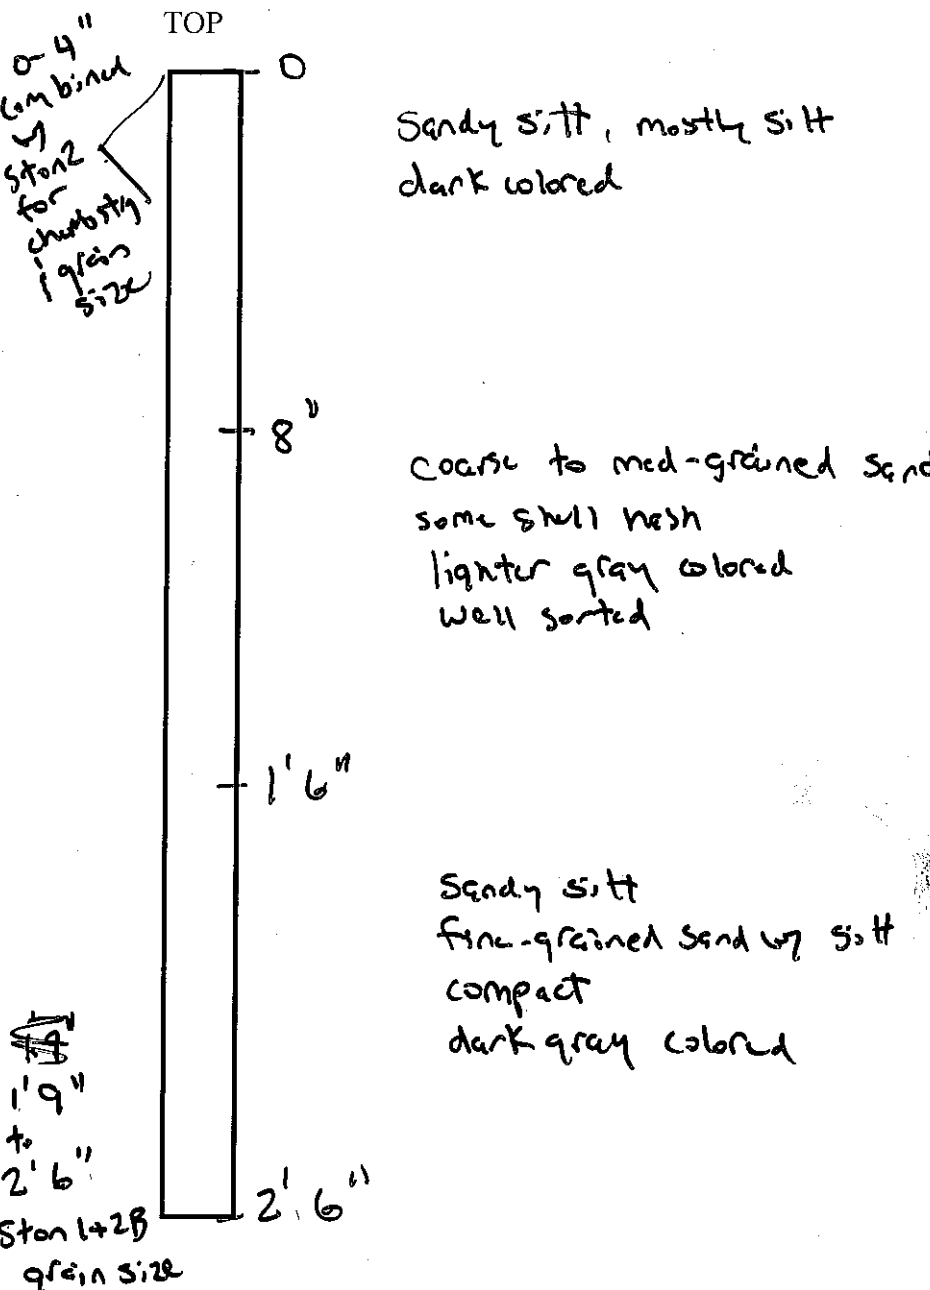 TOP
0-4"
combined
w/
Ston2
for
chemistry
/ grain
size
0
Sandy silt, mostly silt
dark colored
8"
coarse to med-grained sand
some shell hash
lighter gray colored
well sorted
1'6"
Sandy silt
fine-grained sand w/ silt
compact
dark gray colored
1'9"
to
2'6"
Ston 1+2B
grain size
2'6"